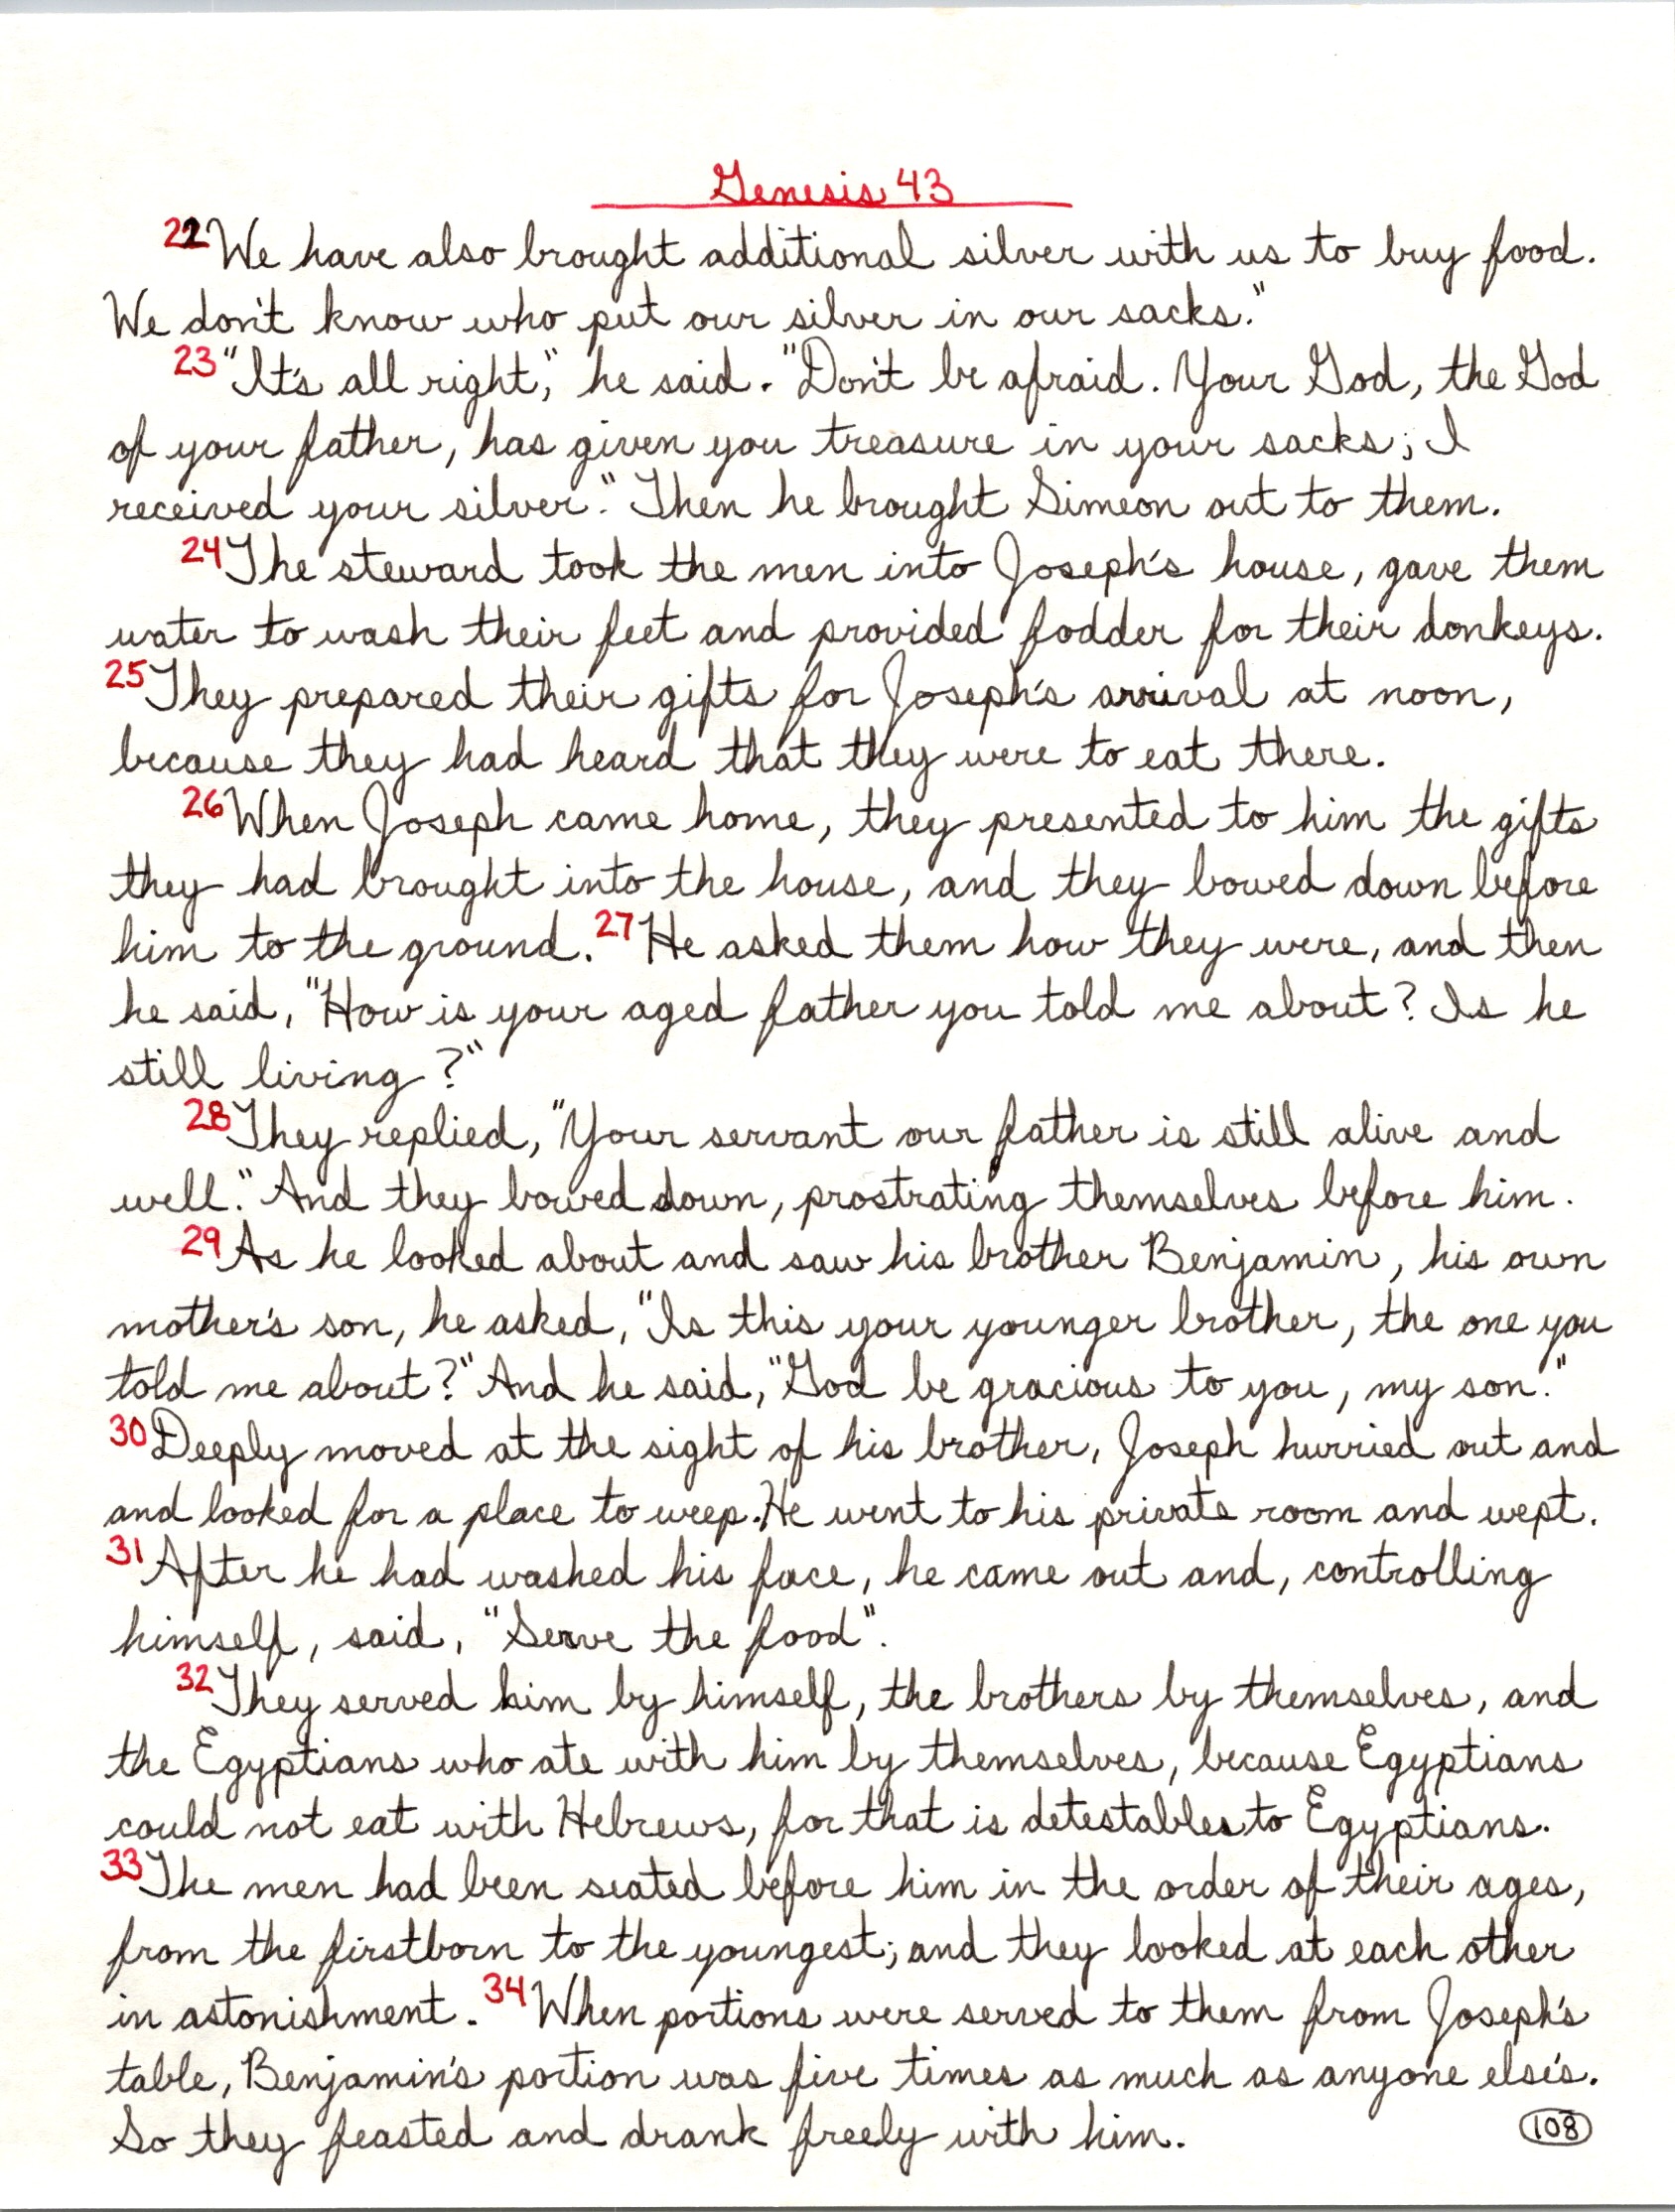 Genesis 43
22 We have also brought additional silver with us to buy food.
We don't know who put our silver in our sacks."
23 "It's all right," he said. "Don't be afraid. Your God, the God
of your father, has given you treasure in your sacks; I
received your silver." Then he brought Simeon out to them.
24 The steward took the men into Joseph's house, gave them
water to wash their feet and provided fodder for their donkeys.
25 They prepared their gifts for Joseph's arrival at noon,
because they had heard that they were to eat there.
26 When Joseph came home, they presented to him the gifts
they had brought into the house, and they bowed down before
him to the ground. 27 He asked them how they were, and then
he said, "How is your aged father you told me about? Is he
still living?"
28 They replied, "Your servant our father is still alive and
well." And they bowed down, prostrating themselves before him.
29 As he looked about and saw his brother Benjamin, his own
mother's son, he asked, "Is this your younger brother, the one you
told me about?" And he said, "God be gracious to you, my son."
30 Deeply moved at the sight of his brother, Joseph hurried out and
and looked for a place to weep. He went to his private room and wept.
31 After he had washed his face, he came out and, controlling
himself, said, "Serve the food".
32 They served him by himself, the brothers by themselves, and
the Egyptians who ate with him by themselves, because Egyptians
could not eat with Hebrews, for that is detestables to Egyptians.
33 The men had been seated before him in the order of their ages,
from the firstborn to the youngest; and they looked at each other
in astonishment. 34 When portions were served to them from Joseph's
table, Benjamin's portion was five times as much as anyone else's.
So they feasted and drank freely with him.
108